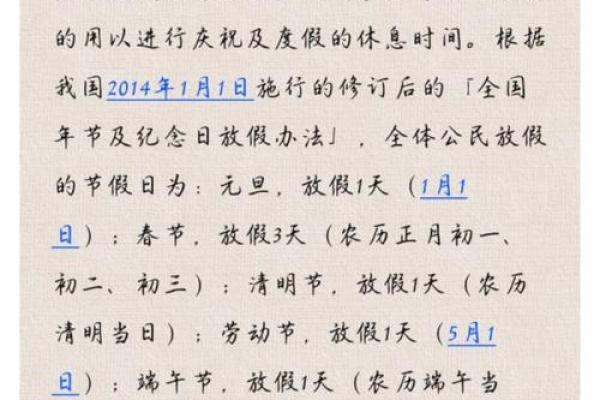 的用以进行庆祝及度假的休息时间。根据
我国2014年1月1日施行的修订后的「全国
年节及纪念日放假办法」，全体公民放假
的节假日为：元旦，放假1天（1月1
日）；春节，放假3天（农历正月初一、
初二、初三）；清明节，放假1天（农历
清明当日）；劳动节，放假1天（5月1
日）；端午节，放假1天（农历端午当